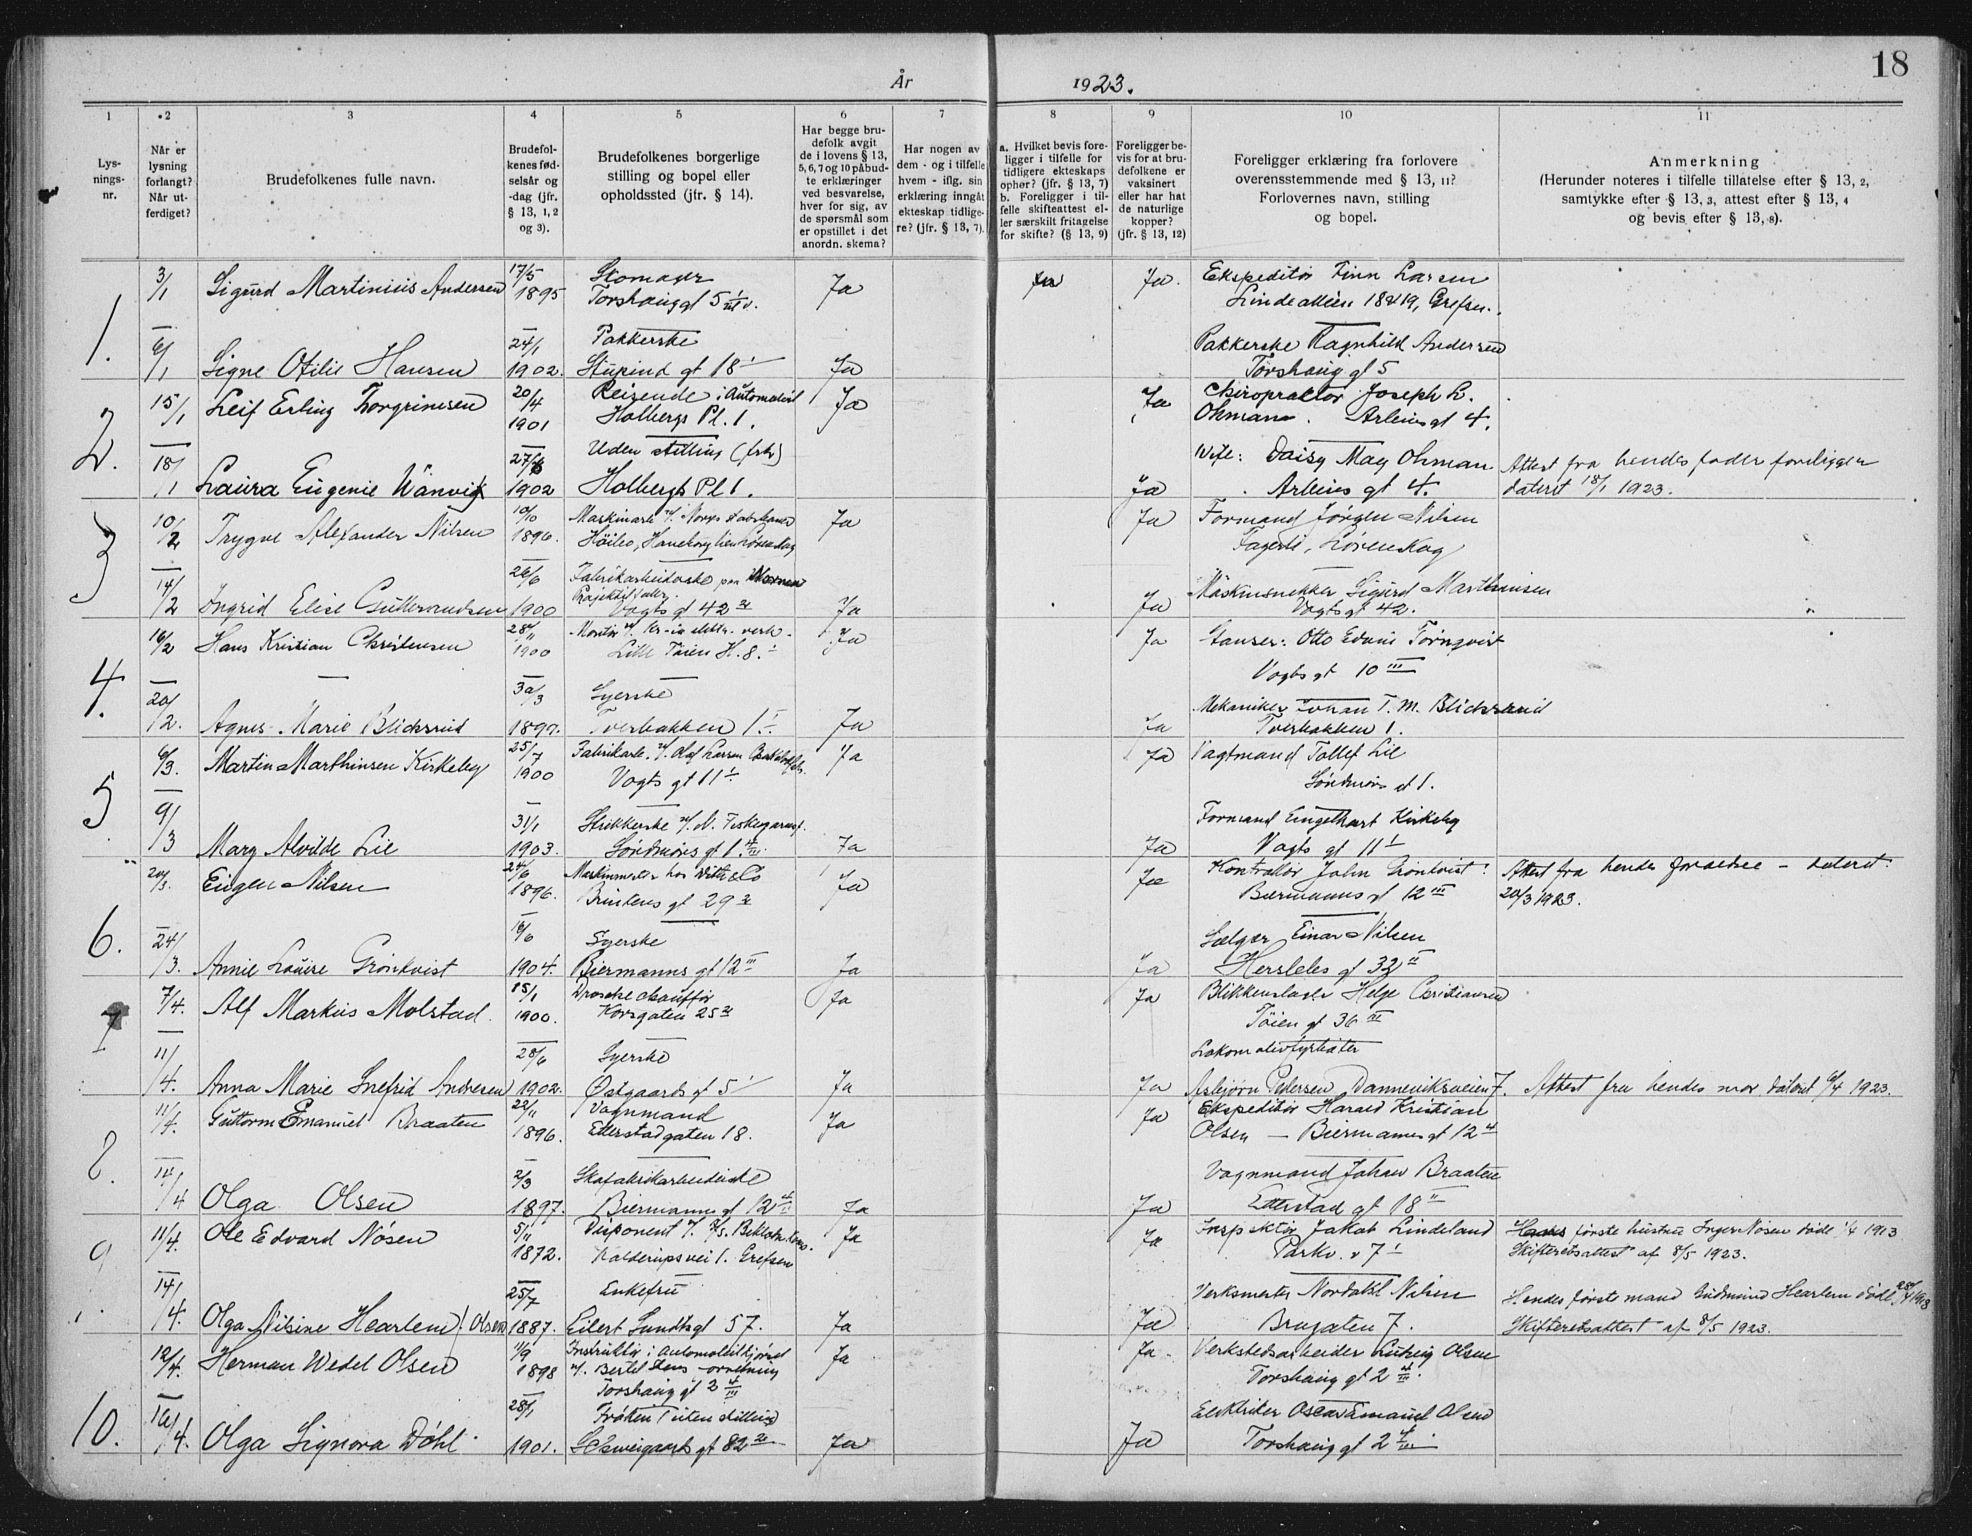 18
År 1923.
1 2 3 4 5 6 7 8 9 10 11
Lys-
nings-
nr.
Når er
lysning
forlangt?
Når ut-
ferdiget?
Brudefolkenes fulle navn.
Brudefol-
kenes fød-
selsår og
-dag (jfr.
§ 13, 1, 2
og 3).
Brudefolkenes borgerlige
stilling og bopel eller
opholdssted (jfr. § 14).
Har begge bru-
defolk avgit
de i lovens § 13,
5, 6, 7 og 10 påbud-
te erklæringer
ved besvarelse,
hver for sig, av
de spørsmål som
er opstillet i det
anordn. skema?
Har nogen av
dem - og i tilfelle
hvem - iflg. sin
erklæring inngåt
ekteskap tidlige-
re? (jfr. § 13, 7).
a. Hvilket bevis fore-
ligger i tilfelle for
tidligere ekteskaps
ophør? (jfr. § 13, 7)
b. Foreligger i til-
felle skifteattest el-
ler særskilt fritagelse
for skifte? (§ 13, 9)
Foreligger be-
vis for at bru-
defolkene er
vaksinert
eller har hat
de naturlige
kopper?
(jfr. § 13, 12)
Foreligger erklæring fra forlovere
overensstemmende med § 13, 11?
Forlovernes navn, stilling
og bopel.
Anmerkning
(Herunder noteres i tilfelle tillatelse efter § 13, 2,
samtykke efter § 13, 3, attest efter § 13, 4
og bevis efter § 13, 8).
1.
3/1 Sigurd Martinius Andersen 17/5 1895 Skomager Ja Ja. Ekspeditør Finn Larsen
Torshaug gt 5 Lindealléen 18 & 19, Grefsen.
6/1 Signe Otilie Hansen 24/1 1902. Pakkerske Ja Pakkerske Ragnhild Andersen
Stupind gt 18 Torshaug gt 5
2.
15/1 Leif Erling Thorgrimsen 20/4 1901 Reisende i Automobil Ja Ja Chiropractor Joseph L.
Holbergs Pl. 1. Ohman. Arbins gt 4.
18/1 Laura Eugenie Wanvik 1902 Uden stilling Ja Wife: Daisy May Ohman Attest fra hendes fader foreligger
Holbergs Pl 1. Arbins gt 4. dateret 18/1 1923.
3
10/2 Trygve Alexander Nilsen 10/10 1896. Ja Ja Formand Jørgen Nilsen
Høibo, Fagerli, Lørenskog
14/2 Ingrid Elise Gulbrandsen 26/6 1900 Fabrikarbeiderske Ja Ja Maskinsnekker Sigurd Marthinsen
Vogts gt 42 Vogts gt 42.
4.
16/2 Hans Kristian Christensen 28/11 1900 Montør Ja Ja Stanser: Otto Edvin Törnqvist
Lille Tøien H. 8. Vogts gt 10 III
20/2. Agnes Marie Blichsrud 30/3 1899. Syerske Ja Ja Mekaniker Johan T. M. Blichsrud
Tverbakken 1 Tverbakken 1.
5
6/3. Martin Marthinsen Kirkeby 25/7 1900 Fabrikarb. Ja Ja Vagtmand Tollef Lie
Vogts gt 11 Søndmørs gt 1.
9/3 Mary Alvilde Lie 31/1 1903. Strikkerske v/. N. Fiskegarnsf. Ja Ja Formand Engelhart Kirkeby
Søndmørs gt 1. Vogts gt 11
6.
20/3. Eugen Nilsen 24/6 1896. Maskinmester hos Ja Ja Kontrollør John Grönkvist Attest fra hendes forældre - dateret
gt 29 Biermanns gt 12 III 20/3 1923.
24/3. Annie Louise Grönkvist 1904. Syerske Ja Ja Sælger Einar Nilsen
Biermanns gt 12 III Herslebs gt 32 II
7
7/4. Alf Markus Molstad. 15/1 1900. Drosche chauffør Ja Ja Blikkenslager Helge Christiansen
Korsgaten 25 Tøien gt 36 III
11/4. Anna Marie Snefrid Andresen 28/6 1902. Syerske Ja Ja Lokomotivfyrbøter
Østgaards gt 5 Asbjørn Pedersen Danneviksveien 7. Attest fra hendes mor dateret 6/4 1923.
8.
11/4. Guttorm Emanuel Braaten 22/11 1896. Vognmand Ja Ja Ekspeditør Harald Kristian
Etterstadgaten 18. Olsen - Biermanns gt 12
14/4 Olga Olsen 2/3 1897. Skofabrikarbeiderske Ja Ja Vognmand Johan Braaten
Biermanns gt 12 Etterstad gt 18
9.
11/4. Ole Edvard Nösen 5/11 1872. Disponent Ja Ja Inspektør Jakob Lindeland første hustru Inger Nösen døde 1/4 1913
Kalderupsvei 1. Grefsen Parkv. 7 Skifteretsattest af 8/5 1923.
14/4. Olga Nilsine Hearlem f. Olsen 25/7 1887. Enkefru Ja Ja Verksmester Nordahl Nilsen Hendes første mand Gudmund Hearlem døde
Eilert Sundts gt 57. Brugaten 7. Skifteretsattest af 8/5 1923.
10.
12/4. Herman Wedel Olsen 1/9 1898 Instruktør i Automobilkjøring Ja Ja. Verkstedsarbeider Ludvig Olsen
Torshaug gt 2 Torshaug gt 2
16/4. Olga Signora Døhl. 28/1 1901. Frøken uten stilling Ja Ja Elektriker Oscar Emanuel Olsen
Schweigaards gt 82 Torshaug gt 2